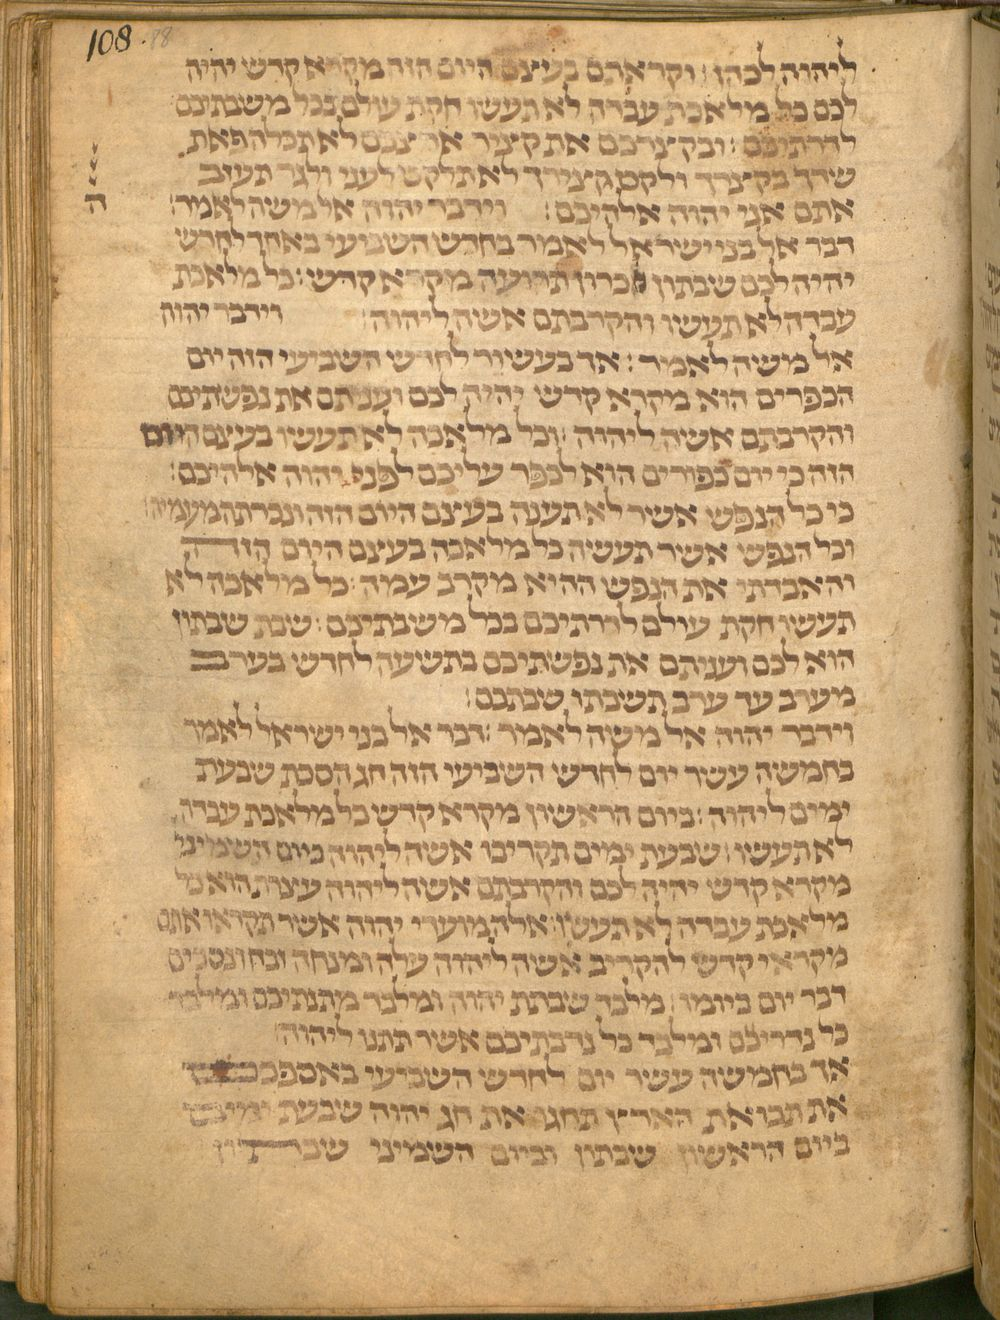 108. 88
ליהוה לכהן : וקראתם בעצם היום הזה מקרא קדש יהיה
לכם כל מלאכת עבדה לא תעשו חקת עולם בכל משבתיכם
לדרתיכם : ובקצרכם את קציר ארצכם לא תכלה פאת
שדך בקצרך ולקט קצירך לא תלקט לעני ולגר תעזב
אתם אני יהוה אלהיכם : וידבר יהוה אל משה לאמר :
ה
דבר אל בני ישראל לאמר בחדש השביעי באחד לחדש
יהיה לכם שבתון זכרון תרועה מקרא קדש : כל מלאכת
עבדה לא תעשו והקרבתם אשה ליהוה : וידבר יהוה
אל משה לאמר : אך בעשור לחדש השביעי הזה יום
הכפרים הוא מקרא קדש יהיה לכם ועניתם את נפשתיכם
והקרבתם אשה ליהוה : וכל מלאכה לא תעשו בעצם היום
הזה כי יום כפורים הוא לכפר עליכם לפני יהוה אלהיכם :
כי כל הנפש אשר לא תענה בעצם היום הזה ונכרתה מעמיה :
וכל הנפש אשר תעשה כל מלאכה בעצם היום הזה
והאבדתי את הנפש ההיא מקרב עמה : כל מלאכה לא
תעשו חקת עולם לדרתיכם בכל משבתיכם : שבת שבתון
הוא לכם ועניתם את נפשתיכם בתשעה לחדש בערב
מערב עד ערב תשבתו שבתכם :
וידבר יהוה אל משה לאמר : דבר אל בני ישראל לאמר
בחמשה עשר יום לחדש השביעי הזה חג הסכת שבעת
ימים ליהוה : ביום הראשון מקרא קדש כל מלאכת עבדה
לא תעשו : שבעת ימים תקריבו אשה ליהוה ביום השמיני
מקרא קדש יהיה לכם והקרבתם אשה ליהוה עצרת הוא כל
מלאכת עבדה לא תעשו : אלה מועדי יהוה אשר תקראו אתם
מקראי קדש להקריב אשה ליהוה עלה ומנחה זבח ונסכים
דבר יום ביומו : מלבד שבתת יהוה ומלבד מתנתיכם ומלבד
כל נדריכם ומלבד כל נדבתיכם אשר תתנו ליהוה :
אך בחמשה עשר יום לחדש השביעי באספכם
את תבואת הארץ תחגו את חג יהוה שבעת ימים
ביום הראשון שבתון וביום השמיני שבתון